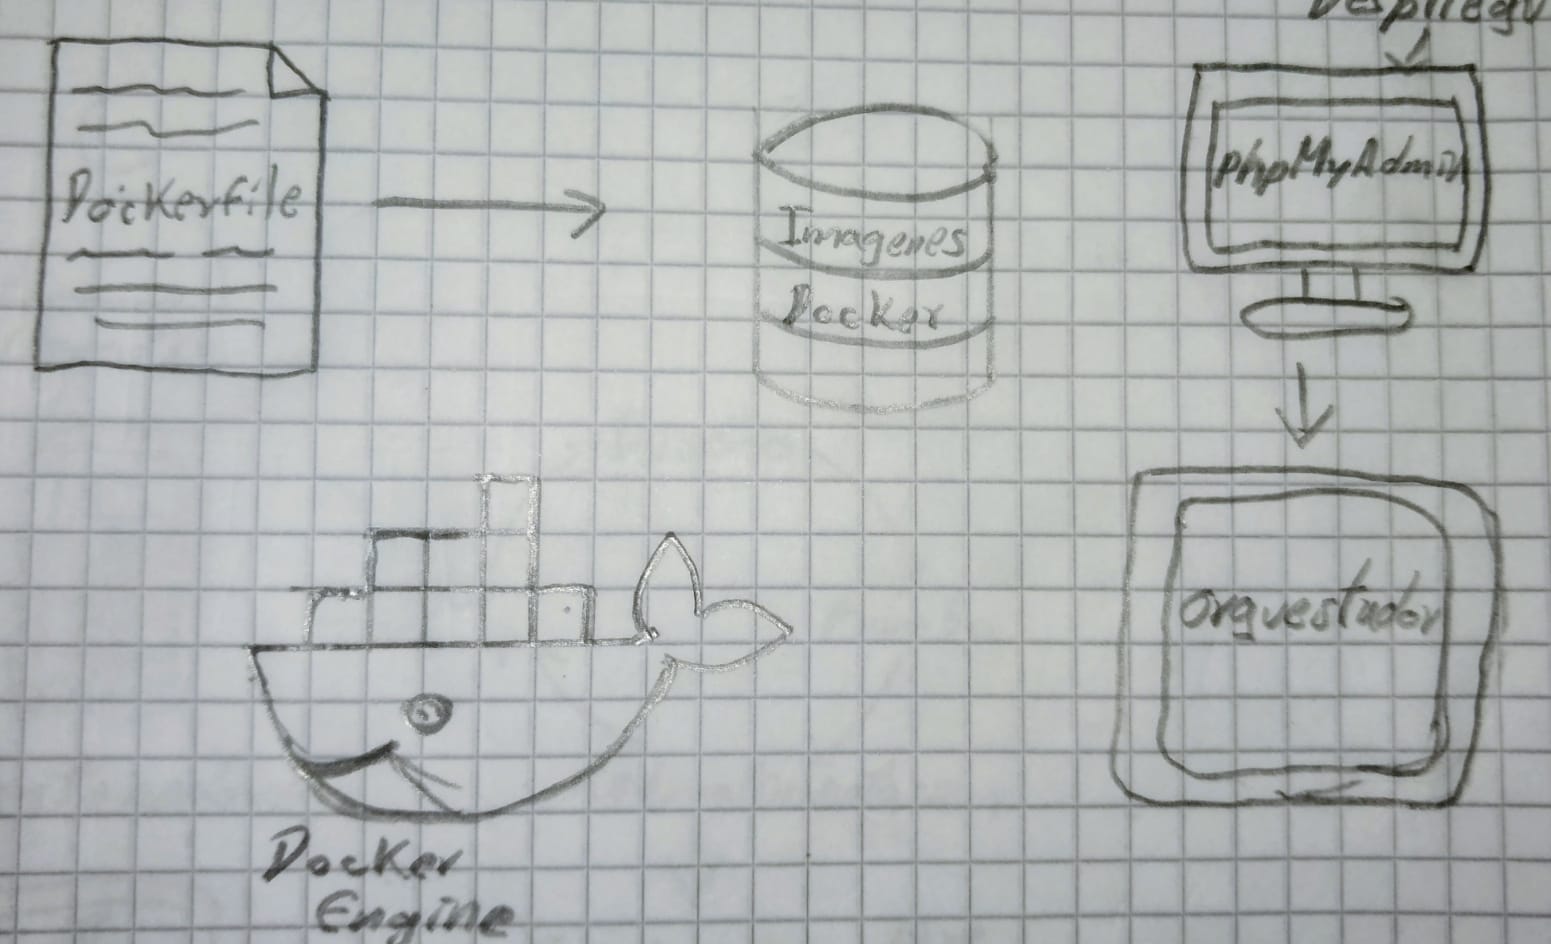 Dockerfile
Imagenes
Docker
phpMyAdmin
orquestador
Docker
Engine